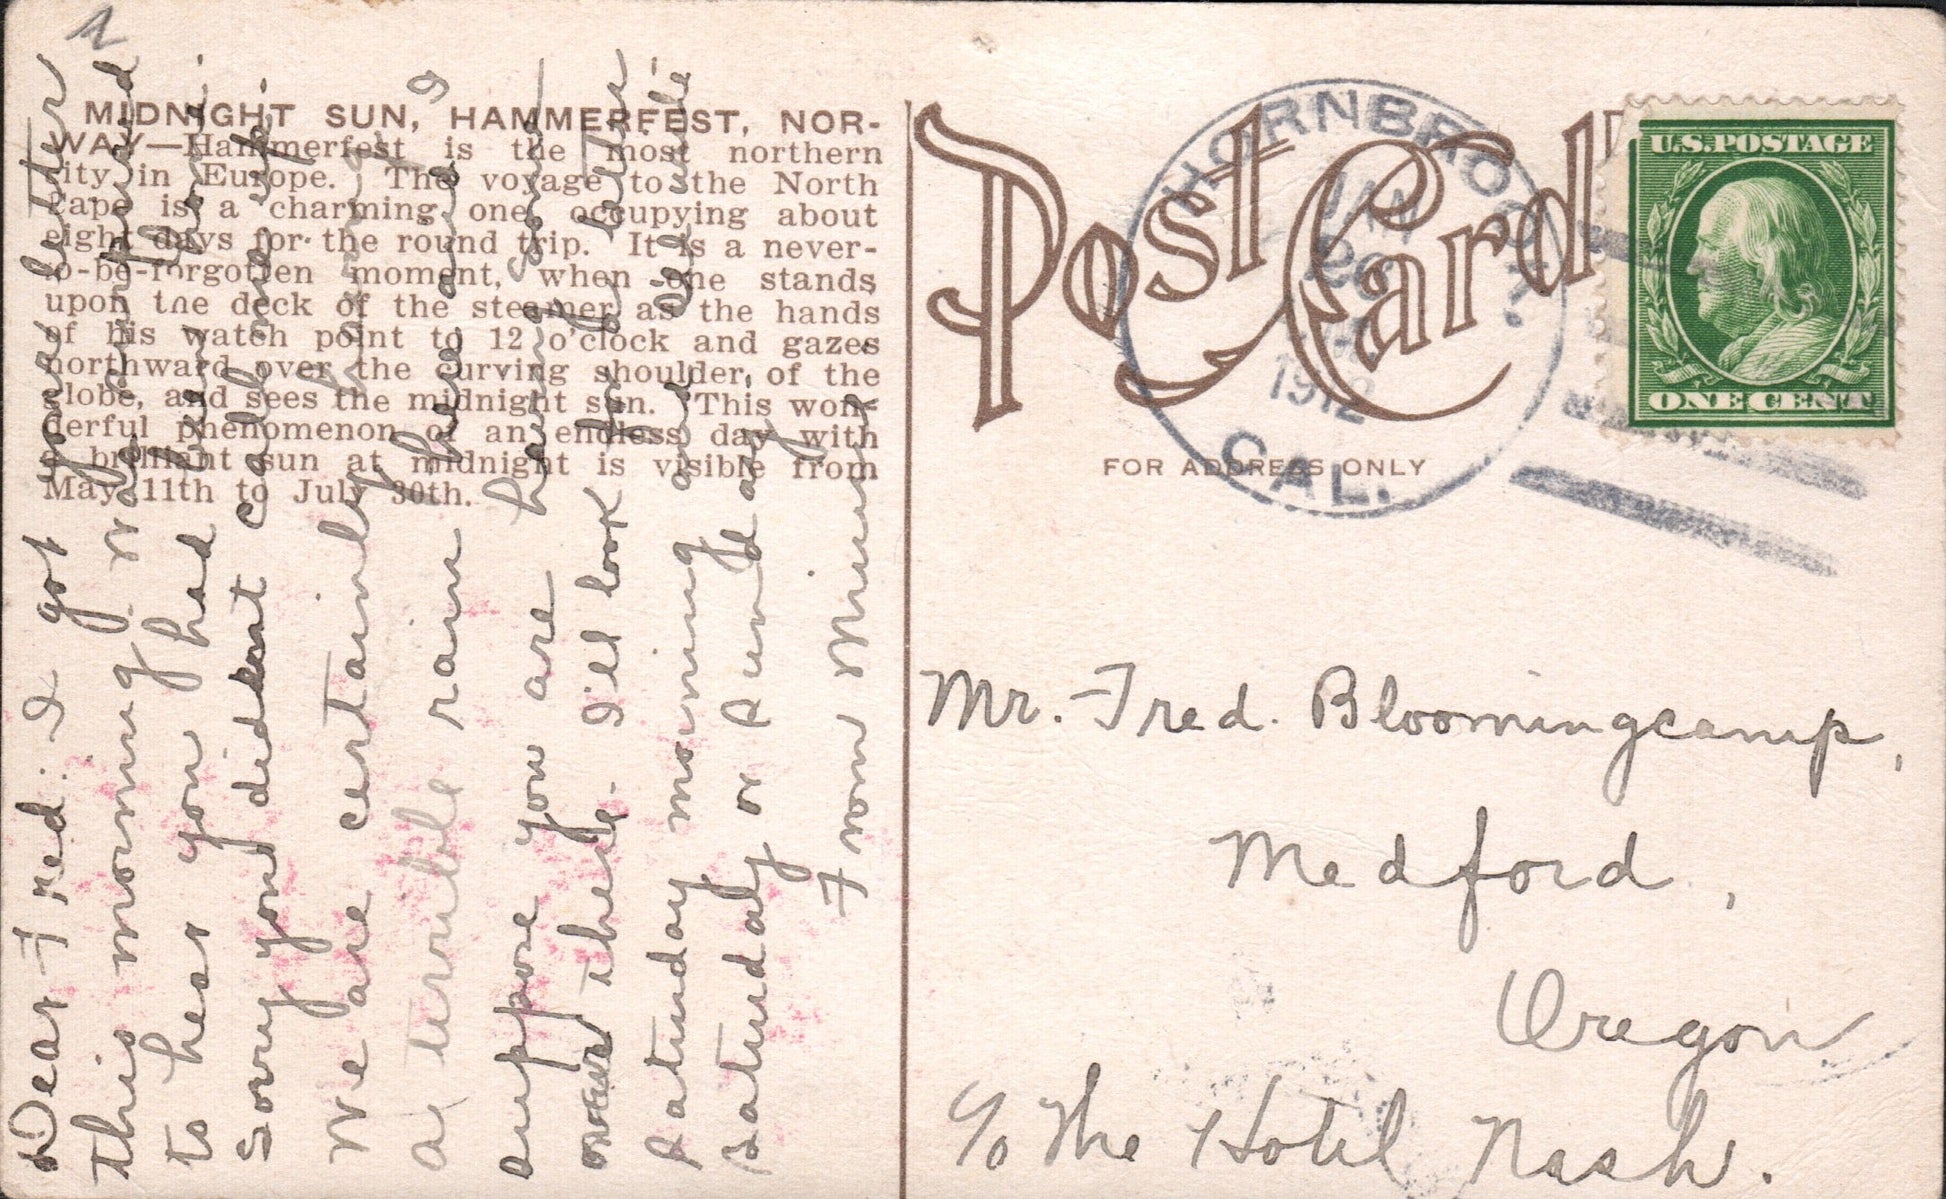 MIDNIGHT SUN, HAMMERFEST, NOR-
WAY—Hammerfest is the most northern
city in Europe. The voyage to the North
Cape is a charming one, occupying about
eight days for the round trip. It is a never-
to-be-forgotten moment, when one stands
upon the deck of the steamer as the hands
of his watch point to 12 o'clock and gazes
northward over the curving shoulder of the
globe, and sees the midnight sun. This won-
derful phenomenon of an endless day with
a brilliant sun at midnight is visible from
May 11th to July 30th.
Dear Fred: I got your letter
this morning. Was
to hear you had been
Sorry you dident
We are certainly
a terrible rain here and I
suppose you are having some
over there. I'll look for
Saturday morning and
Saturday or Sunday.
From Minnie
Post Card
FOR ADDRESS ONLY
HORNBROOK,
JAN
1912
CAL.
U.S. POSTAGE
ONE CENT
Mr. Fred. Bloomingcamp,
Medford,
Oregon
c/o The Hotel Nash.